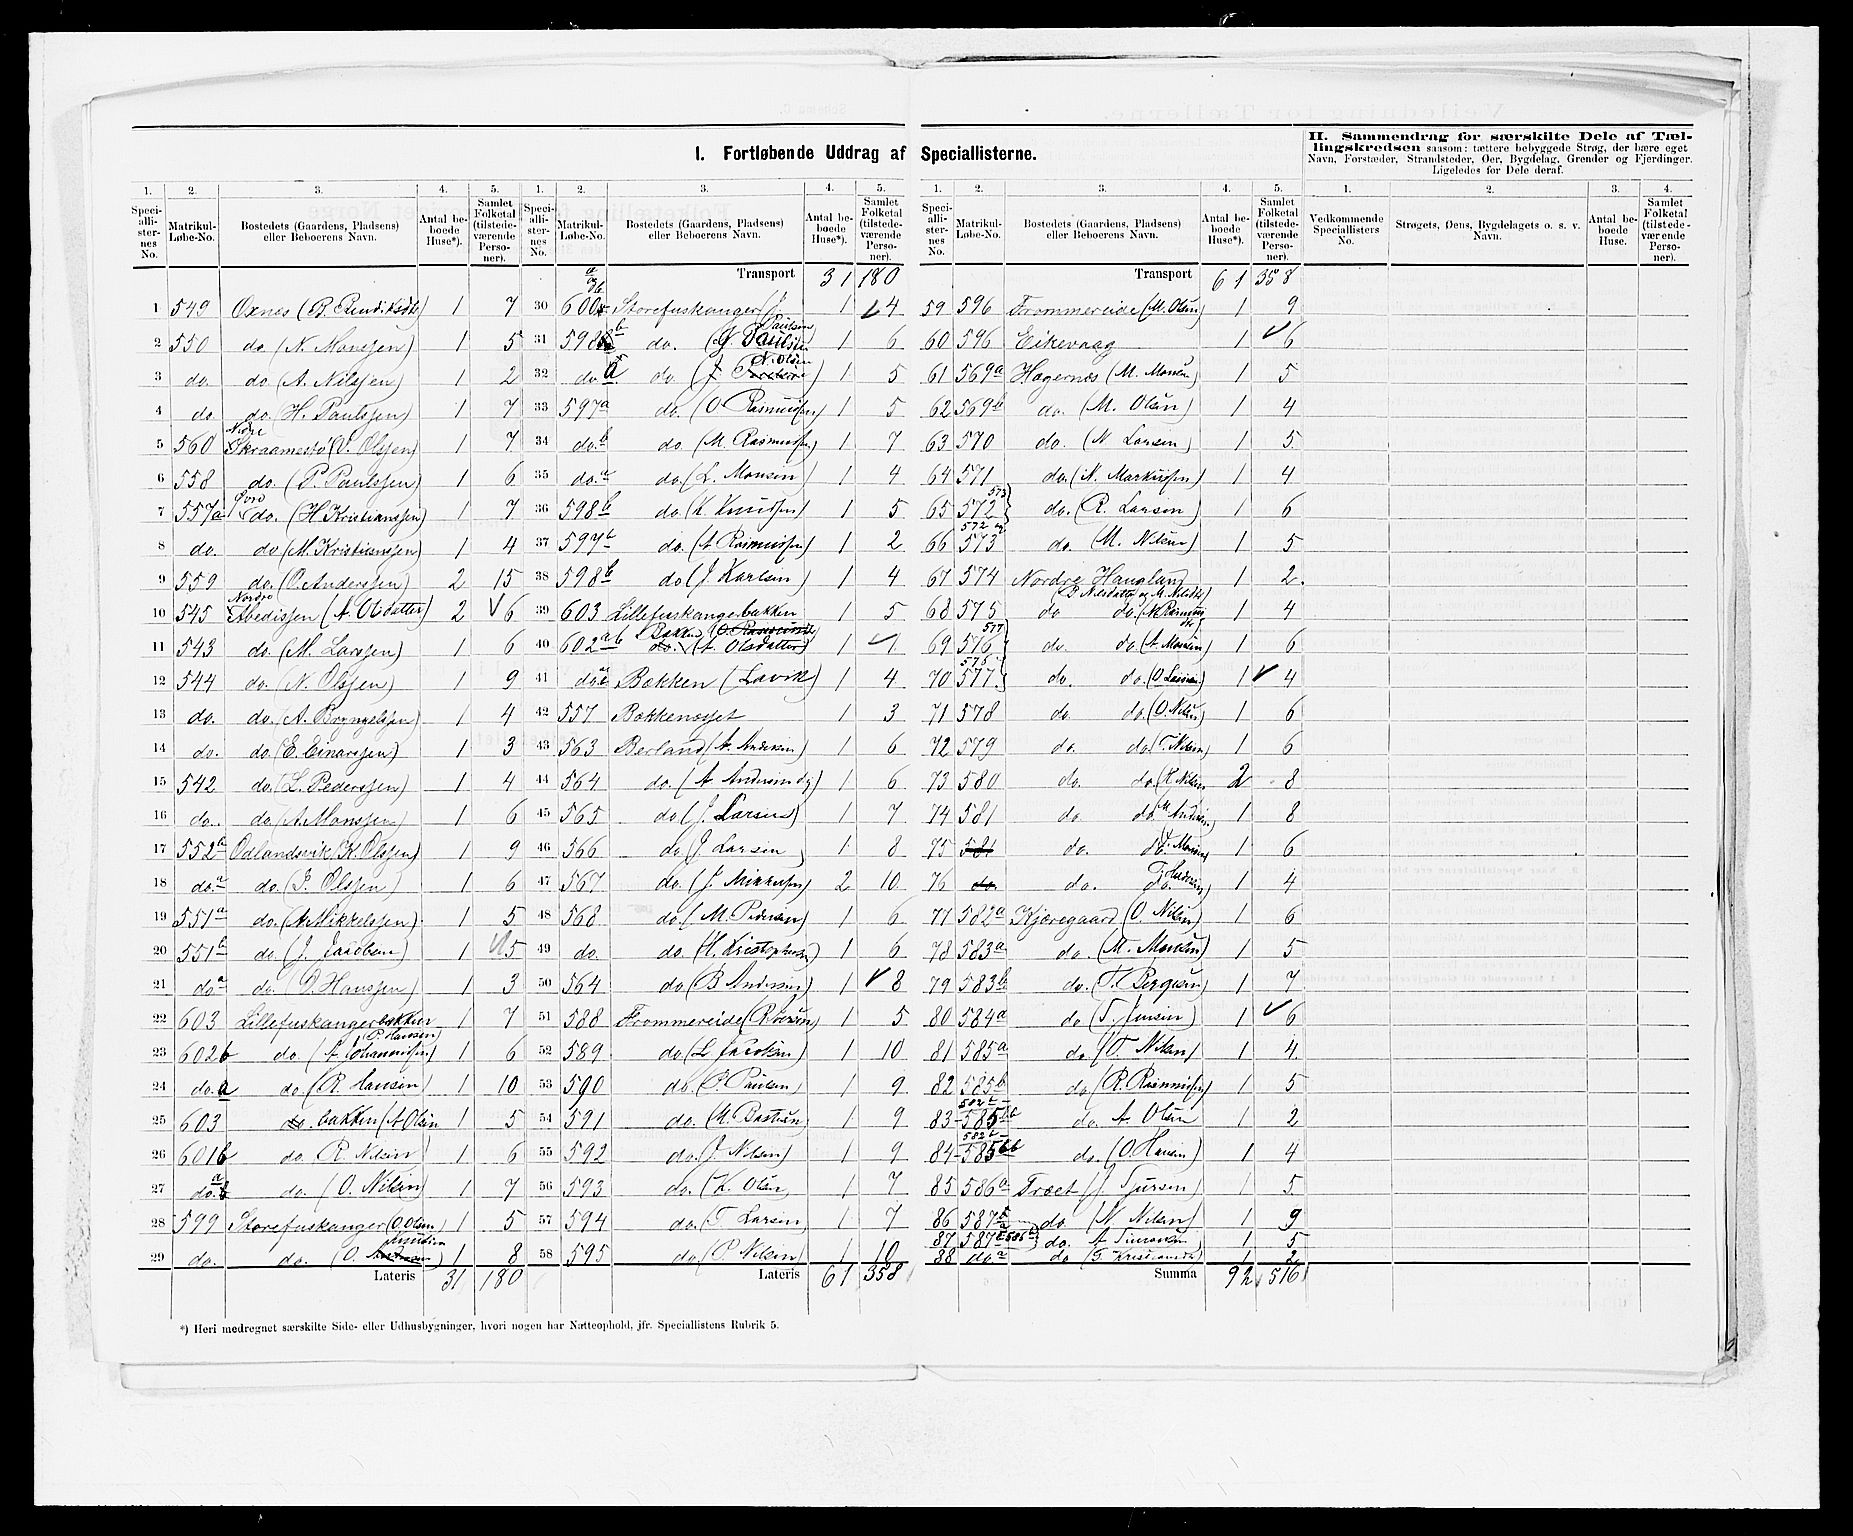 I. Fortløbende Uddrag af Speciallisterne.
II. Sammendrag for særskilte Dele af Tæl-
lingskredsen saasom: tættere bebyggede Strøg, der bære eget
Navn, Forstæder, Strandsteder, Øer, Bygdelag, Grender og Fjerdinger.
Ligeledes for Dele deraf.
1. 2. 3. 4. 5.
Speci-alli-ster-nes No. Matrikul-Løbe-No. Bostedets (Gaardens, Pladsens) eller Beboerens Navn. Antal be-boede Huse*). Samlet Folketal (tilstede-værende Perso-ner).
1 549 Oxnes (B. 1 7
2 550 do. (N. Monssen) 1 5
3 do. do. (A. Nilssen) 1 2
4 do. do. (H. Paulssen) 1 7
5 560 Nedre Skraamestø (O. Olssen) 1 7
6 558 do. (P. Paulssen) 1 6
7 557a Øvre do. (H. Kristianssen) 1 7
8 do. do. (M. Kristianssen) 1 4
9 559 do. (O. Anderssen) 2 15
10 545 Nordre Abedissen (A. Olsdatter) 2 6
11 543 do. (M. Larssen) 1 6
12 544 do. (N. Olssen) 1 9
13 do. do. (A. Bryngelssen) 1 4
14 do. do. (E. Einarssen) 1 3
15 542 do. (L. Pederssen) 1 4
16 do. do. (A. Monssen) 1 6
17 552a Odlandsvik (K. Olssen) 1 9
18 do. a do. (J. Olssen) 1 6
19 551a do. (A. Mikkelssen) 1 5
20 551b do. (J. Jacobsen) 1 5
21 do. a do. (O. Hanssen) 1 3
22 603 Lillefuskangerbakken 1 7
P. Hansen
23 602b do. (A. Johannessen) 1 6
24 do. a do. (R. Hansen) 1 10
25 603 do. bakken (A. Olsen 1 5
26 601b do. R. Nilsen 1 6
27 do. a do. (O. Nilsen) 1 7
28 599 Storefuskanger (O. Olsen) 1 5
29 do. do. (O. Knudsen) 1 8
Lateris 31 180
1. 2. 3. 4. 5.
Speci-alli-ster-nes No. Matrikul-Løbe-No. Bostedets (Gaardens, Pladsens) eller Beboerens Navn. Antal be-boede Huse*). Samlet Folketal (tilstede-værende Perso-ner).
Transport 31 180
30 600 Storefuskanger (J. Paulsen 1 4
31 598b do. 1 6
32 do. a do. (N. Olsen 1 5
33 597a do. (O. Rasmussen) 1 5
34 do. b do. (M. Rasmussen) 1 7
35 do. a do. (L. Monsen) 1 4
36 598b do. (K. Knudsen) 1 5
37 597b do. (A. Rasmussen) 1 2
38 598b do. (J. Karlsen) 1 4
39 603 Lillefuskangerbakken 1 5
40 602ab Bakken (A. Olsdatter) 1 1
41 do. Bakken (Lavik) 1 4
42 557 Bakkenesset 1 3
43 563 Berland (A. Andersen) 1 6
44 564 do. (A. Andersen dy) 1 6
45 565 do. (J. Larsen) 1 7
46 566 do. (J. Larsen) 1 8
47 567 do. (J. Mikkelsen) 2 10
48 568 do. (M. Pedersen) 1 6
49 do. do. (H. Kristophersen) 1 6
50 564 do. (B. Andersen) 1 8
51 588 Trommereide (R. Iversen) 1 5
52 589 do. (L. Jacobsen) 1 10
53 590 do. (P. Paulsen) 1 9
54 591 do. (M. Bastesen) 1 9
55 592 do. (J. Nilsen) 1 9
56 593 do. (K. Olsen) 1 7
57 594 do. (T. Larsen) 1 7
58 595 do. (P. Nilsen) 1 10
Lateris 61 358
1. 2. 3. 4. 5.
Speci-alli-ster-nes No. Matrikul-Løbe-No. Bostedets (Gaardens, Pladsens) eller Beboerens Navn. Antal be-boede Huse*). Samlet Folketal (tilstede-værende Perso-ner).
Transport 61 358
59 596 Trommereide (M. Olsen) 1 9
60 596 Eikevaag 1 6
61 569a Hagernes (M. Monsen) 1 5
62 569b do. (M. Olsen) 1 4
63 570 do. (N. Larsen) 1 5
64 571 do. (N. Markussen) 1 4
65 572 573 do. (R. Larsen) 1 6
66 572 og 573 do. (M. Nilsen) 1 5
67 574 Nordre Haugland 1 2
(B. Nilsdatter og M. Nilsdtr)
68 575 do. do. (N. Rasmussen) 1 4
69 576 577 do. do. (A. Monsen) 1 6
70 575 577 do. do. (O. Larsen) 1 4
71 578 do. do. (O. Nilsen) 1 6
72 579 do. do. (T. Nilsen) 1 6
73 580 do. do. (K. Nilsen) 2 8
74 581 do. do. (M. Andersen) 1 8
75 581 do. do. (T. Monsen) 1 6
76 do. do. do. 1 4
77 582a Kjæregaard (O. Nilsen) 1 6
78 583a do. (M. Monsen) 1 5
79 583b do. (T. Børgesen) 1 7
80 584a do. (T. Jensen) 1 6
81 585a do. (T. Nilsen) 1 4
82 585b do. (R. Rasmussen) 1 5
83 582b 585ba do. A. Olsen 1 2
84 582b 585bb do. (O. Hansen) 1 4
85 586a Træet (J. Sjursen) 1 5
86 587b do. (N. Nilsen) 1 9
87 587 E585b do. A. Simonsen 1 5
88 do. a do. (T. Kristiansen) 1 2
Summa 92 516
1. 2. 3. 4.
Vedkommende Speciallisters No. Strøgets, Øens, Bygdelagets o. s. v. Navn. Antal be-boede Huse. Samlet Folketal (tilstede-værende Perso-ner).
*) Heri medregnet særskilte Side- eller Udhusbygninger, hvori nogen har Natteophold, jfr. Speciallistens Rubrik 5.